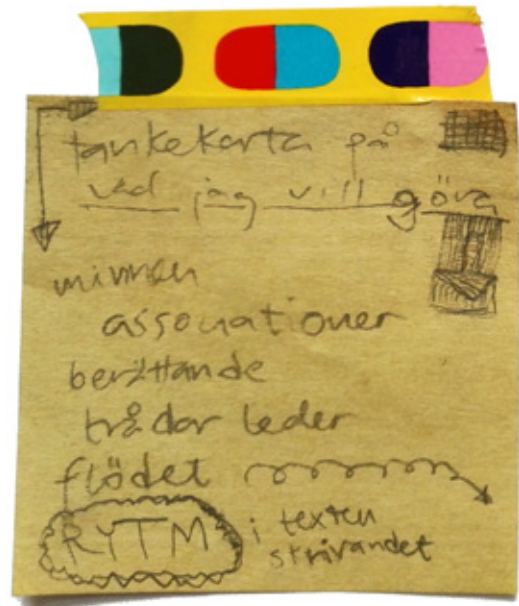 tankekarta på
vad jag vill göra
minnen
associationer
berättande
trådar leder
flödet
RYTM i texten
skrivandet